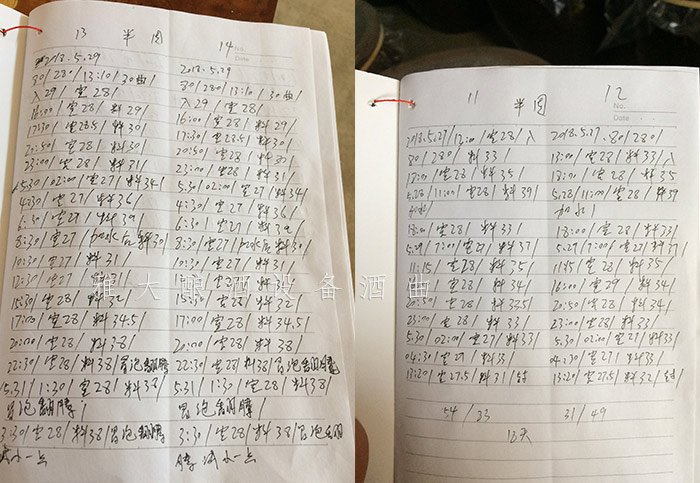 13 半周 14
2018.5.29
30/28°/13:10/30曲/
入29/室28/
16:00/室28/料29/
17:30/室28.5/料30/
20:50/室28/料30/
23:00/室28/料31/
5.30/02:00/室27/料34/
4:30/室27/料36/
6:30/室27/料39/
8:30/室27/加水后料30/
10:30/室27/料31/
12:30/室27/料31/
15:30/室28/料32/
17:00/室28/料34.5/
20:00/室28/料38/
22:30/室28/料38/冒泡翻腾
5.31/1:30/室28/料38/
冒泡翻腾/
3:30/室28/料38/冒泡翻腾
减小一点
No.
Date
2018.5.29
30/280/13:10/30曲/
入29/室28/
16:00/室28/料29/
17:30/室28.5/料30/
20:50/室28/料30/
23:00/室28/料31/
5.30/02:00/室27/料34/
4:30/室27/料36/
6:30/室27/料39/
8:30/室27/加水后料30/
10:30/室27/料31/
室27/料31/
15:30/室28/料32/
17:00/室28/料34.5/
20:00/室28/料38/
22:30/室28/料38/冒泡翻腾
5.31/1:30/室28/料38/
冒泡翻腾/
3:30/室28/料38/冒泡翻
腾减小一点
11 半周 12
No.
Date
2018.5.27/12:00/室28/入
30/280/料33/
18:00/室28/料35/
5.28/11:00/室28/料39/
加水/
18:00/室28/料33/
5.29/7:00/室27/料37/
11:15/室28/料35/
室28/料34/
20:50/室28/料33.5/
23:00/室28/料33/
5.30/02:00/室27/料33/
04:30/室27/料33/
13:20/室27.5/料31/封
54/33
2018.5.27.30/280/
13:00/室28/料33/入
18:00/室28/料35/
5.28/11:00/室28/料39
加水/
18:00/室28/料33/
5.29/7:00/室27/料37/
11:15/室28/料35/
16:00/室29/料34/
20:50/室28/料34/
23:00/室28/料33/
5.30/02:00/室27/料33/
04:30/室27/料33/
13:20/室27.5/料32/封
31/49
12天
雅大酿酒设备酒曲